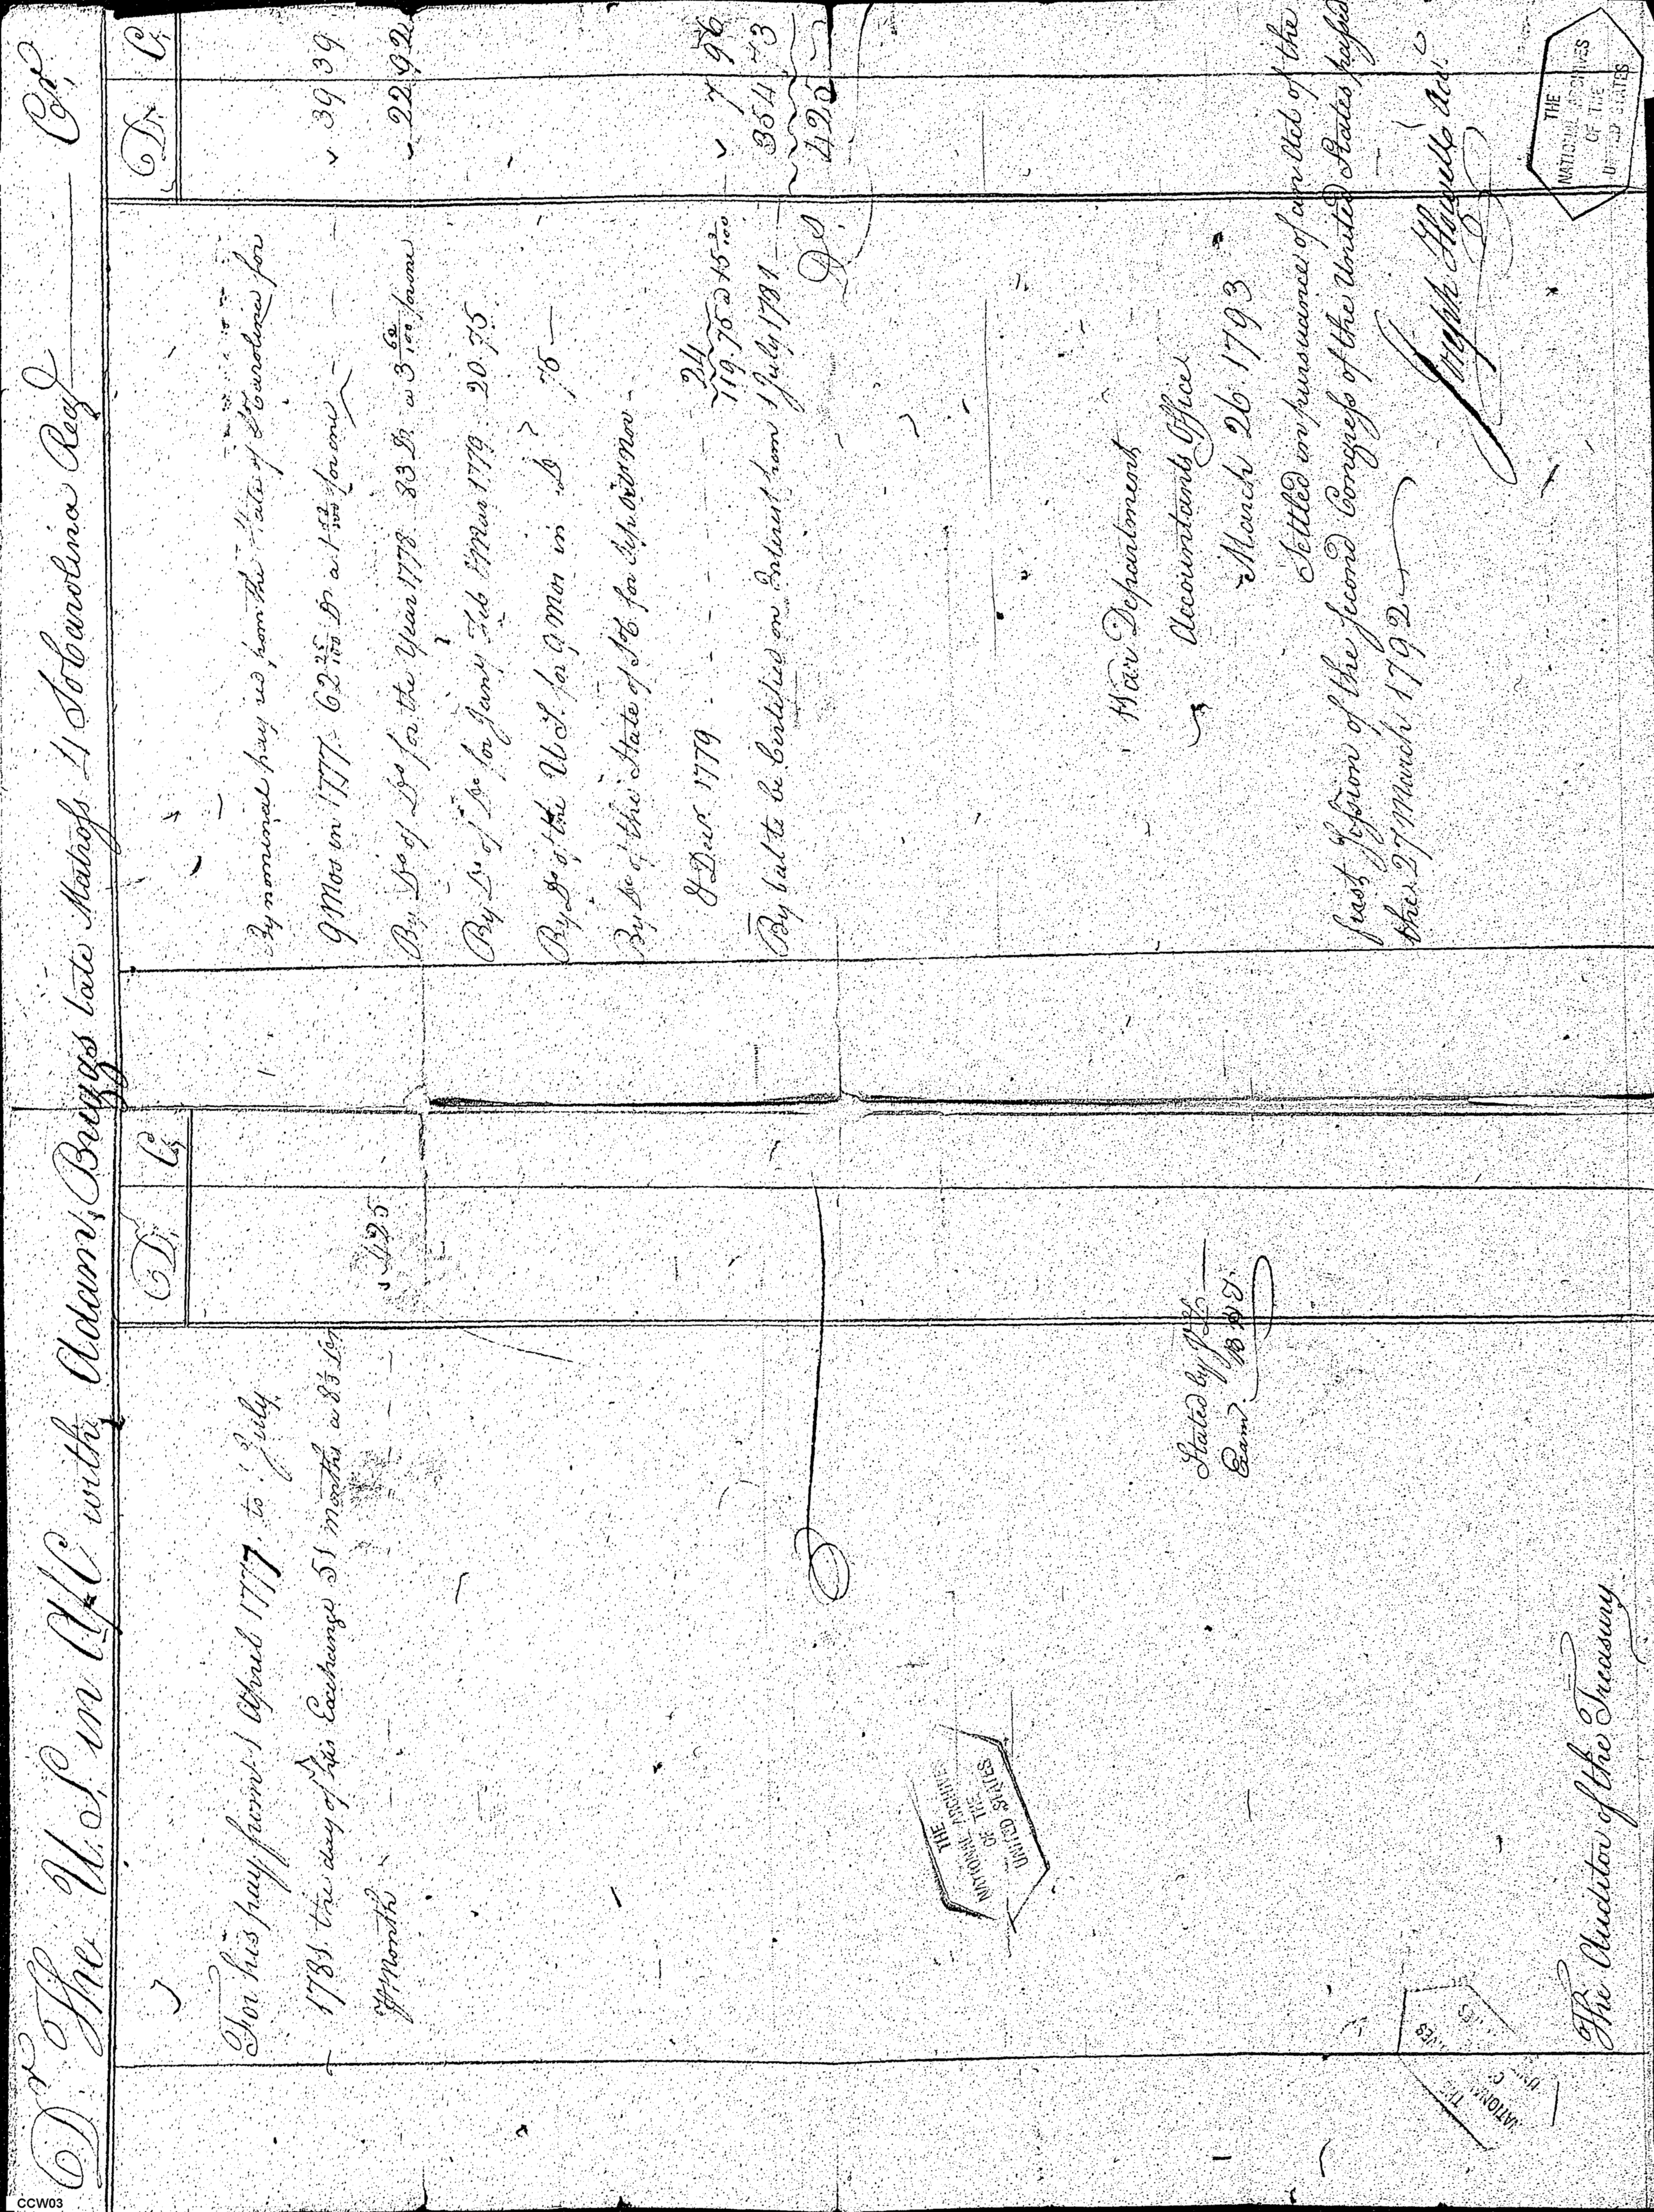 Dr The U.S in A/C with Adam Buggs late Matross 4 So Carolina Reg Cr.
D. C.
For his pay from 1 April 1777. to 1 July
1781. the day of his Exchange 51 months a 8 1/3 Dr
⅌ Month
425
Stated by
Exam.
The Auditor of the Treasury.
D. C.
By nominal pay red, from the State of So Carolina for
9 Mos in 1777. 62 25/100 Dr. a 1 52/100 for one 39 39
By Do of Do for the Year 1778 83 Dr. a 3 62/100 for one 22 92
By Do of Do for Jany Feb & Mar 1779 20.75
By Do of the U.S. for 9 Mos in Do 75
By Do of the State of So C for Sep. Oct Nov
& Decr 1779 24
119.75 a 15 3/100 7 96
By bal to be Certified on Interest from 1 July 1781 354 73
Ds. 425
War Department
Accountants Office
March 26. 1793
Settled in pursuance of an Act of the
first Session of the second Congress of the United States passed
the 27 March 1792
Joseph Howell Acct.
THE
NATIONAL ARCHIVES
OF THE
UNITED STATES
THE
NATIONAL ARCHIVES
OF THE
UNITED STATES
CCW03